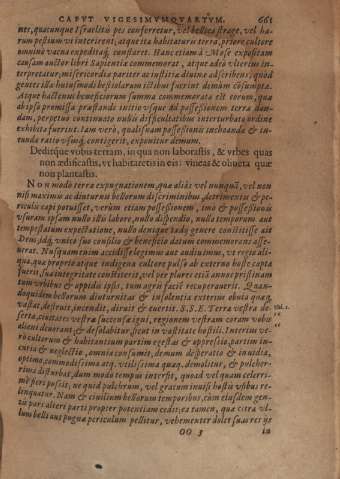 CAPVT VIGESIMVMQVARTVM. 661
nes, quacunque Israelitis pes conferretur, vel bellica strage, vel ha-
rum pestium vi interirent; atque ita habitaturis terra, priore cultore
omnino vacua expeditaq; constaret. Hanc etiam à Mose expositam
causam auctor libri Sapientiæ commemorat, atque adeò vlterius in-
terpretatur; misericordia pariter ac iustitiæ diuinæ adscribens; quòd
gentes istæ huiusmodi bestiolarum ictibus fuerint demùm cōsumptæ.
Atque hactenus beneficiorum summa commemorata est eorum, quæ
ab ipso promissæ præstandi initio vsque ad possessionem terræ dan-
dam, perpetuo continuato nullis difficultatibus interturbato ordine
exhibita fuerint. Iam verò, qualisnam possessionis inchoandæ & in-
eunda ratio vsusq́; contigerit, exponitur demum.
Dedítque vobis terram, in qua non laborastis, & vrbes quas
non ædificastis, vt habitaretis in eis: vineas & oliueta quæ
non plantastis.
NON modò terra expugnationem, quæ aliàs vel nunquā, vel non
nisi maximis ac diuturnis bellorum discriminibus, detrimentis & pe-
riculis capi potuisset, verùm etiam possessionem, imò & possessionis
vsuram ipsam nullo illis labore, nullo dispendio, nulla temporum aut
tempestatum expectatione, nullo denique tædij genere constitisse ait
Deus; idq́; vnicè suo consilio & beneficio datum commemorans asse-
uerat. Nusquam enim accidisse legimus aut audiuimus, vt regio ali-
qua, quæ proprio atque indigena cultore pulso ab externo hoste capta
fuerit, sua integritate constiterit, vel per plures etiā annos pristinam
tum vrbibus & oppidis ipsis, tum agris facie recuperauerit. Quan-
doquidem bellorum diuturnitas & insolentia extrema obuia quæq́;
vastat, destruit, incendit, diruit & euertit. S.S.E. Terra vestra de-
serta, ciuitates vestræ succensæ igni, regionem vestram coram vobis
alieni deuorant, & desolabitur, sicut in vastitate hostili. Interim ve-
rò cultorum & habitantium partim egestas & oppressio, partim in-
curia & neglectio, omnia consumit, demum desperatio & inuidia,
optima, commodissima atq́; vtilissima quæq́; demolitur, & pulcher-
rima disturbat, dum modò tempus intersit, quoad vel quam celerri-
mè peri possit, ne quid pulchrum, vel gratum inuisi hostis vsibus re-
linquatur. Nam & ciuilium bellorum temporibus, cùm eiusdem gen-
tis pars altera partis propter potentiam cedit; ea tamen, quæ citra vl-
lum belli aut pugnæ periculum pellitur, vehementer dolet suas res ijs
OO 3 in